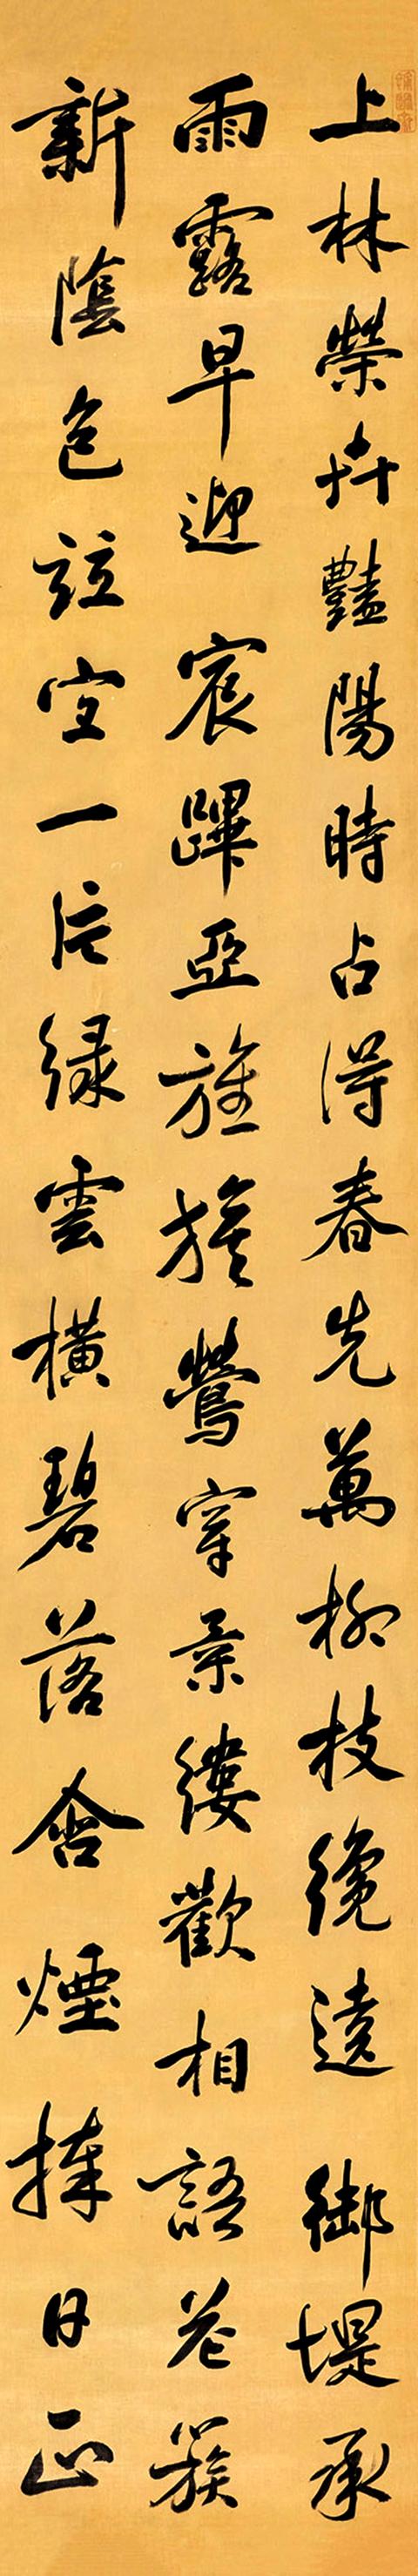 上林榮卉豔陽時占得春先萬柳枝纔遶御堤承
雨露早迎宸蹕亞旌旗鶯穿柔縷歡相語花簇
新陰色竝宜一片綠雲橫碧落含煙捧日正